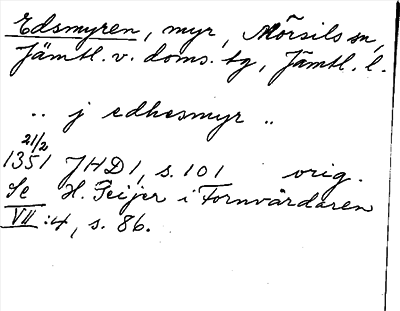 Edsmyren, myr, Mörsils sn,
Jämtl. v. doms. tg, Jämtl. l.
.. j edhesmyr ..
21/2
1351 JHD 1, s. 101 orig.
Se H. Geijer i Fornvårdaren
VII :4, s. 86.